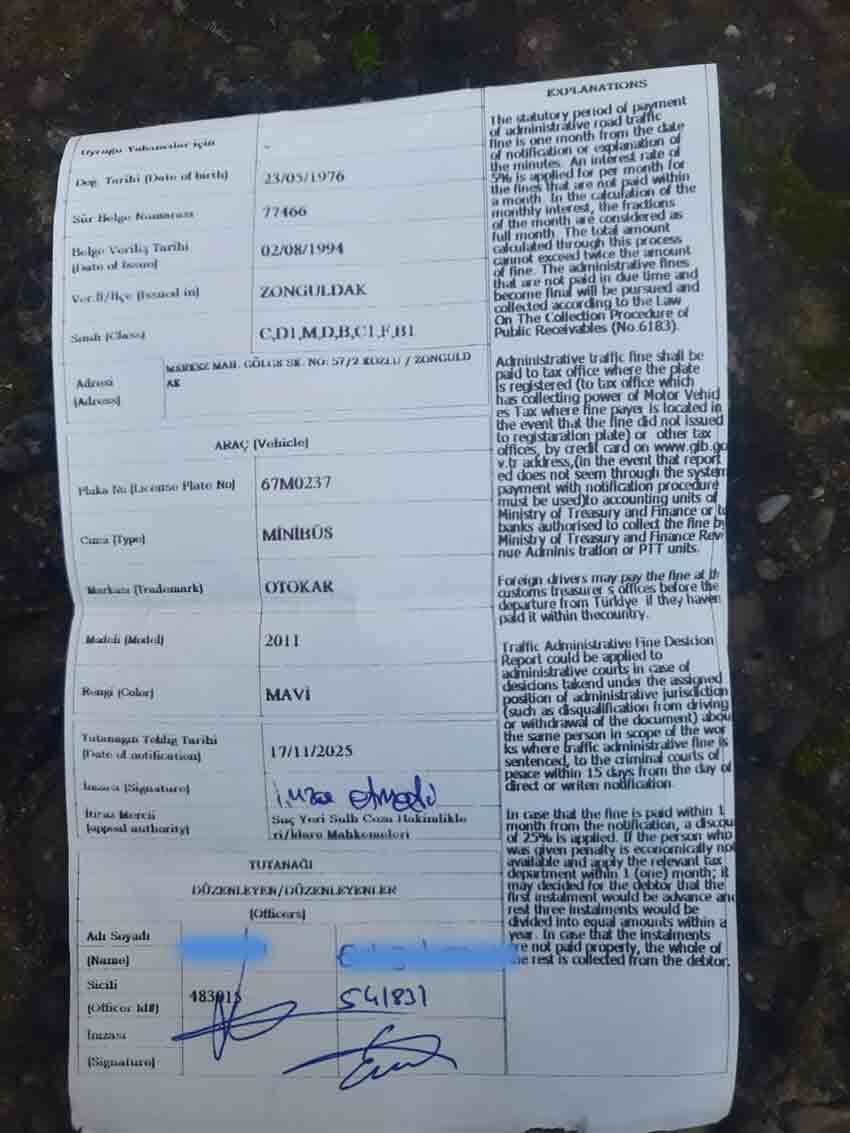 Uyruğu Yabancılar için -
Doğ. Tarihi (Date of birth) 23/05/1976
Sür Belge Numarası 77466
Belge Veriliş Tarihi
(Date of Issue) 02/08/1994
Ver.İl/İlçe (Issued in) ZONGULDAK
Sınıfı (Class) C,D1,M,D,B,C1,F,B1
Adresi
(Adress)
MERKEZ MAH. GÖLGE SK. NO: 57/2 KOZLU / ZONGULD
AK
ARAÇ (Vehicle)
Plaka No (License Plate No) 67M0237
Cinsi (Type) MİNİBÜS
Markası (Trademark) OTOKAR
Modeli (Model) 2011
Rengi (Color) MAVİ
Tutanağın Tebliğ Tarihi
(Date of notification) 17/11/2025
İmzası (Signature) İmza etmedi
İtiraz Mercii
(appeal authority)
Suç Yeri Sulh Ceza Hakimlikle
ri/İdare Mahkemeleri
TUTANAĞI
DÜZENLEYEN/DÜZENLEYENLER
(Officers)
Adı Soyadı
(Name)
Sicili
(Officer Id#) 483015 541831
İmzası
(Signature)
EXPLANATIONS
The statutory period of payment
of administrative road traffic
fine is one month from the date
of notification or explanation of
the minutes. An interest rate of
5% is applied for per month for
the fines that are not paid within
a month. In the calculation of the
monthly interest, the fractions
of the month are considered as
full month. The total amount
calculated through this process
cannot exceed twice the amount
of fine. The administrative fines
that are not paid in due time and
become final will be pursued and
collected according to the Law
On The Collection Procedure of
Public Receivables (No.6183).
Administrative traffic fine shall be
paid to tax office where the plate
is registered (to tax office which
has collecting power of Motor Vehicl
es Tax where fine payer is located in
the event that the fine did not issued
to registaration plate) or other tax
offices, by credit card on www.gib.go
v.tr address,(in the event that report
ed does not seem through the system
payment with notification procedure
must be used)to accounting units of
Ministry of Treasury and Finance or to
banks authorised to collect the fine by
Ministry of Treasury and Finance Reve
nue Adminis tration or PTT units.
Foreign drivers may pay the fine at th
customs treasurer s offices before the
departure from Türkiye if they haven
paid it within thecountry.
Traffic Administrative Fine Desicion
Report could be applied to
administrative courts in case of
desicions takend under the assigned
position of administrative jurisdiction
(such as disqualification from driving
or withdrawal of the document) abou
the same person in scope of the wor
ks where traffic administrative fine is
sentenced, to the criminal courts of
peace within 15 days from the day of
direct or writen notification.
In case that the fine is paid within 1
month from the notification, a discou
of 25% is applied. If the person who
was given penalty is economically not
available and apply the relevant tax
department within 1 (one) month; it
may decided for the debtor that the
first instalment would be advance and
rest three instalments would be
divided into equal amounts within a
year. In case that the instalments
are not paid property, the whole of
the rest is collected from the debtor.